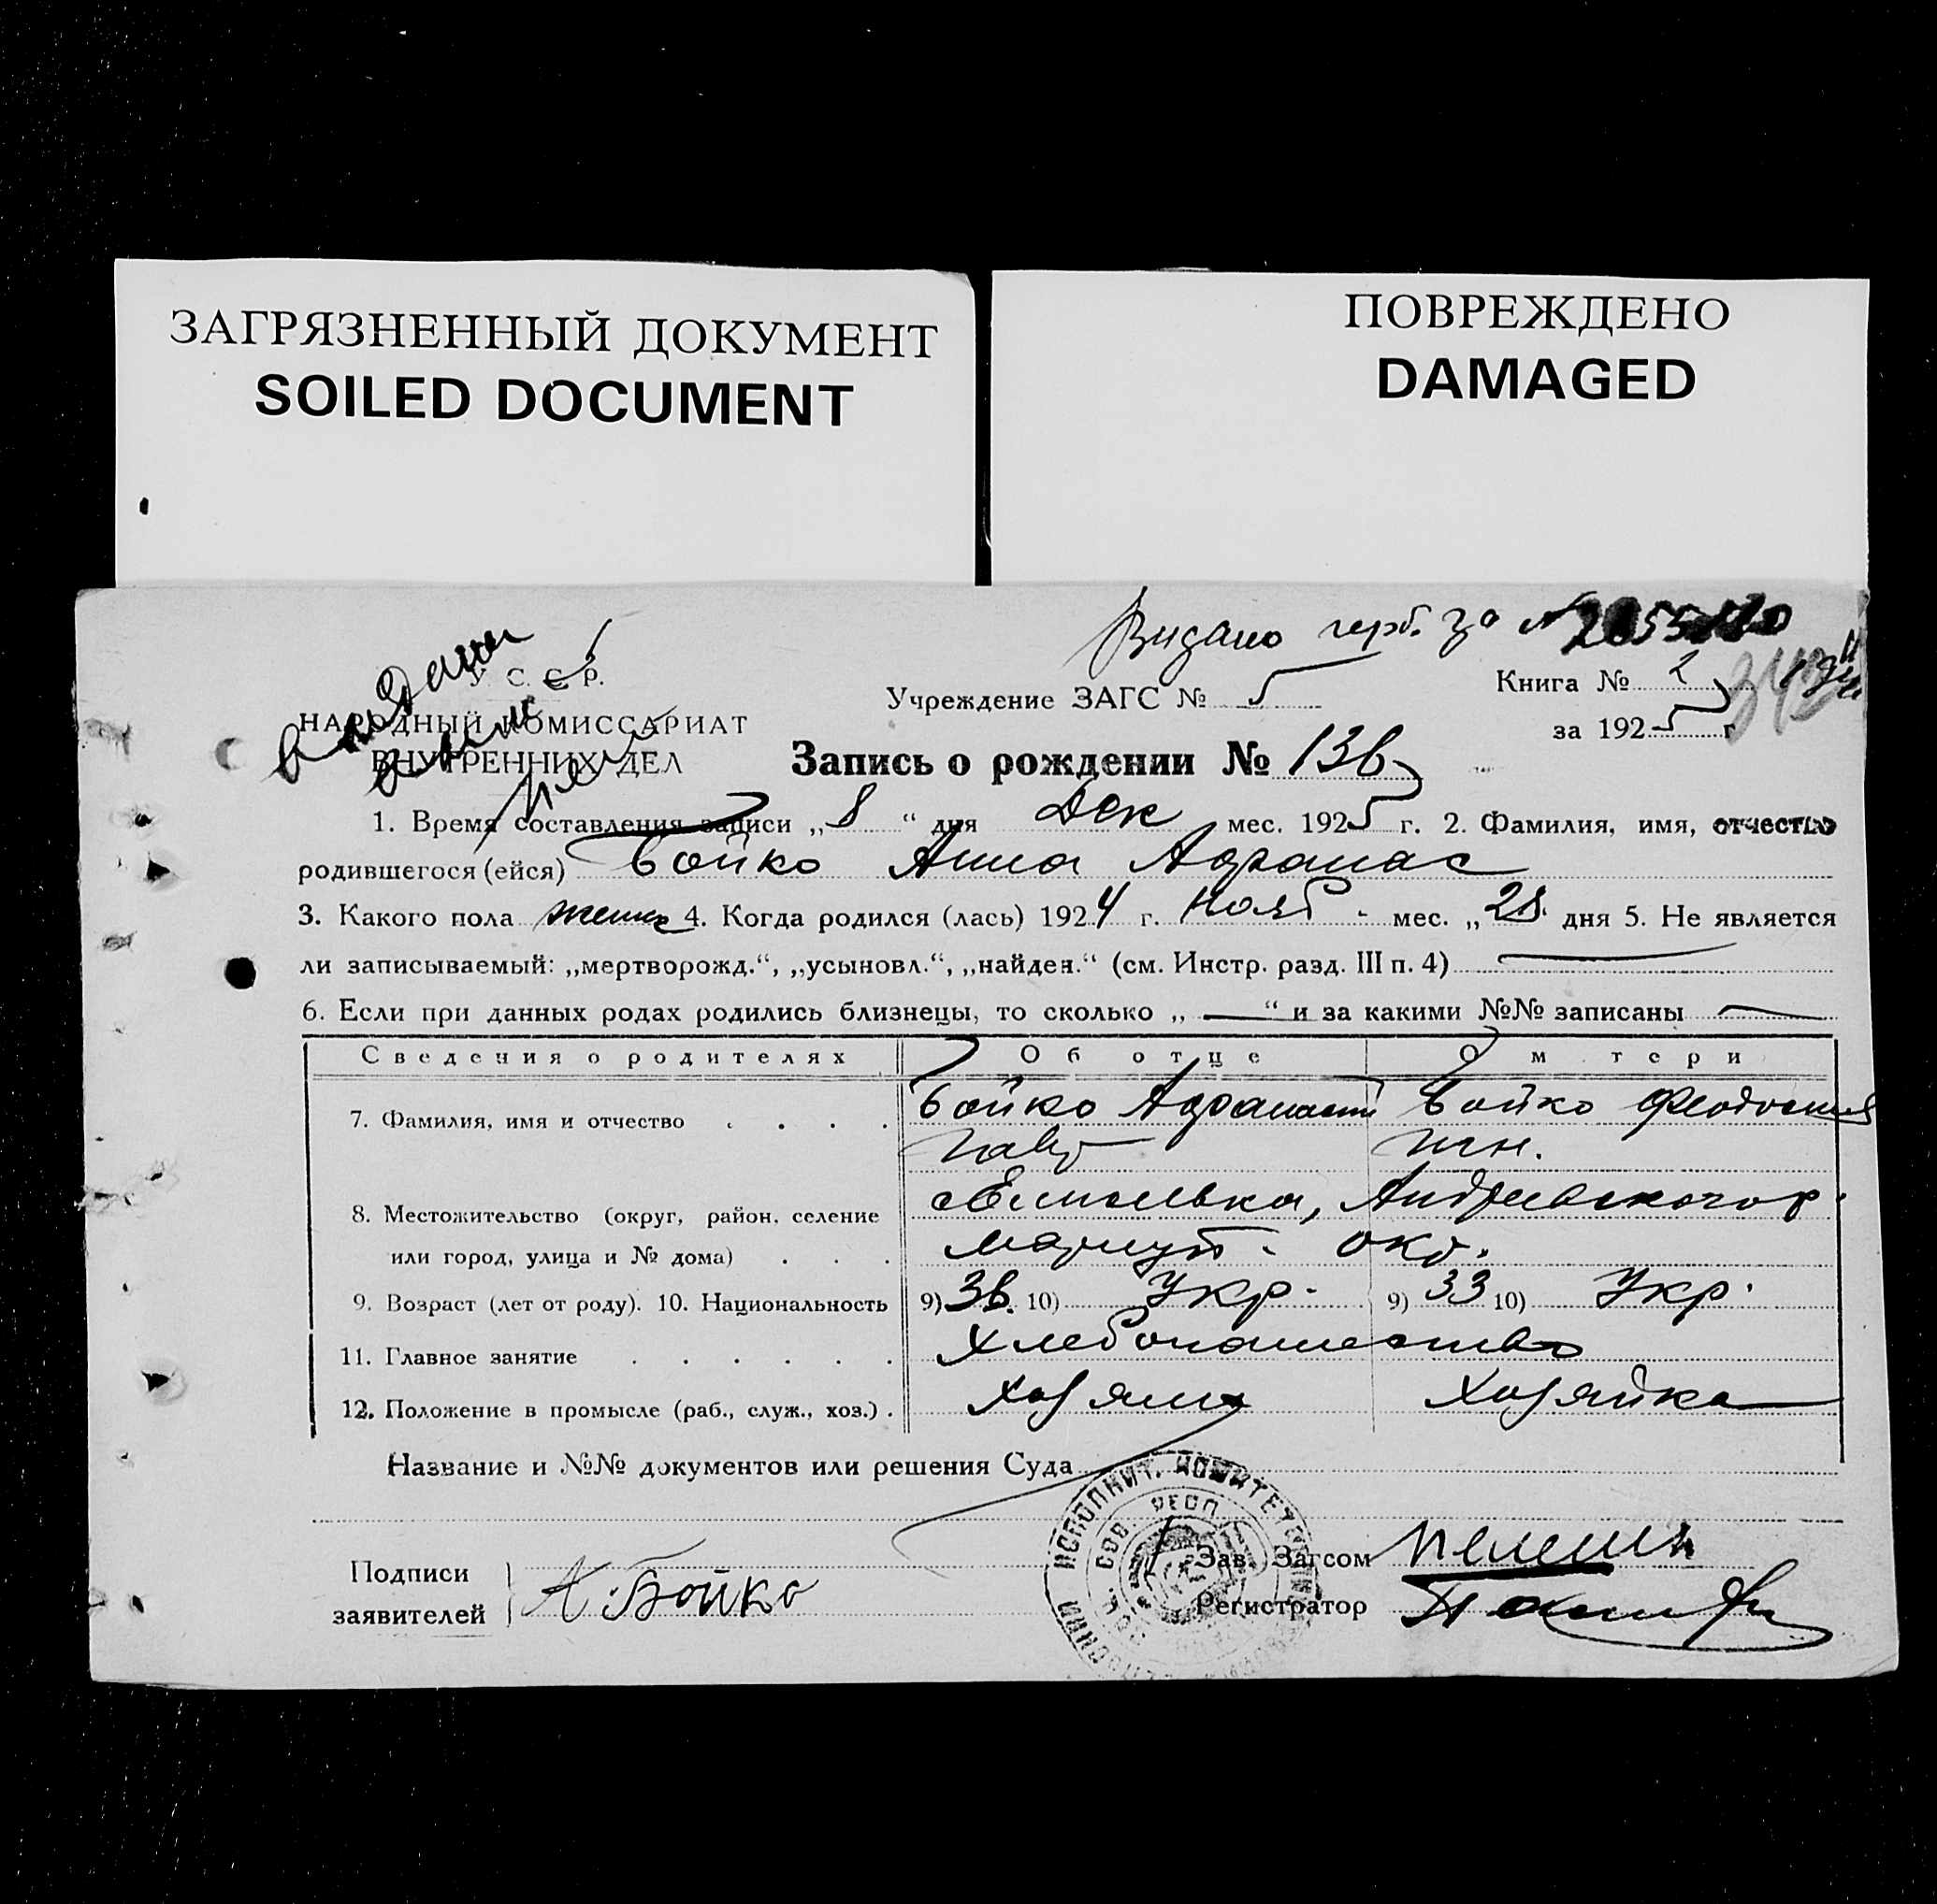 ЗАГРЯЗНЕННЫЙ ДОКУМЕНТ
SOILED DOCUMENT
ПОВРЕЖДЕНО
DAMAGED
Видано герб. за №
У. С. С. Р.
НАРОДНЫЙ КОМИССАРИАТ
ВНУТРЕННИХ ДЕЛ
Учреждение ЗАГС № 5
Книга № 2
за 1925 г.
Запись о рождении № 136
1. Время составления записи „8“ дня Дек мес. 1925 г. 2. Фамилия, имя, отчество
родившегося (ейся) Бойко Анна Афанас
3. Какого пола женск 4. Когда родился (лась) 1924 г. Нояб. мес. „28. дня 5. Не является
ли записываемый: „мертворожд.“, „усыновл.“, „найден.“ (см. Инстр. разд. III п. 4) —
6. Если при данных родах родились близнецы, то сколько „ — “ и за какими №№ записаны —
Сведения о родителях Об отце О м тери
7. Фамилия, имя и отчество . . . . Бойко Афанасий Бойко Феодосия
8. Местожительство (округ, район, селение Андреевского р.
или город, улица и № дома) . . . Мариуп. окр.
9. Возраст (лет от роду). 10. Национальность 9) 36. 10) Укр. 9) 33 10) Укр.
11. Главное занятие . . . . . . Хлебопашество
12. Положение в промысле (раб., служ., хоз.) . Хозяин Хозяйка
Название и №№ документов или решения Суда
ИСПОЛНИТ. КОМИТЕТ
СОВ. РЕСП.
Подписи
заявителей А. Бойко
Зав. Загсом
Регистратор